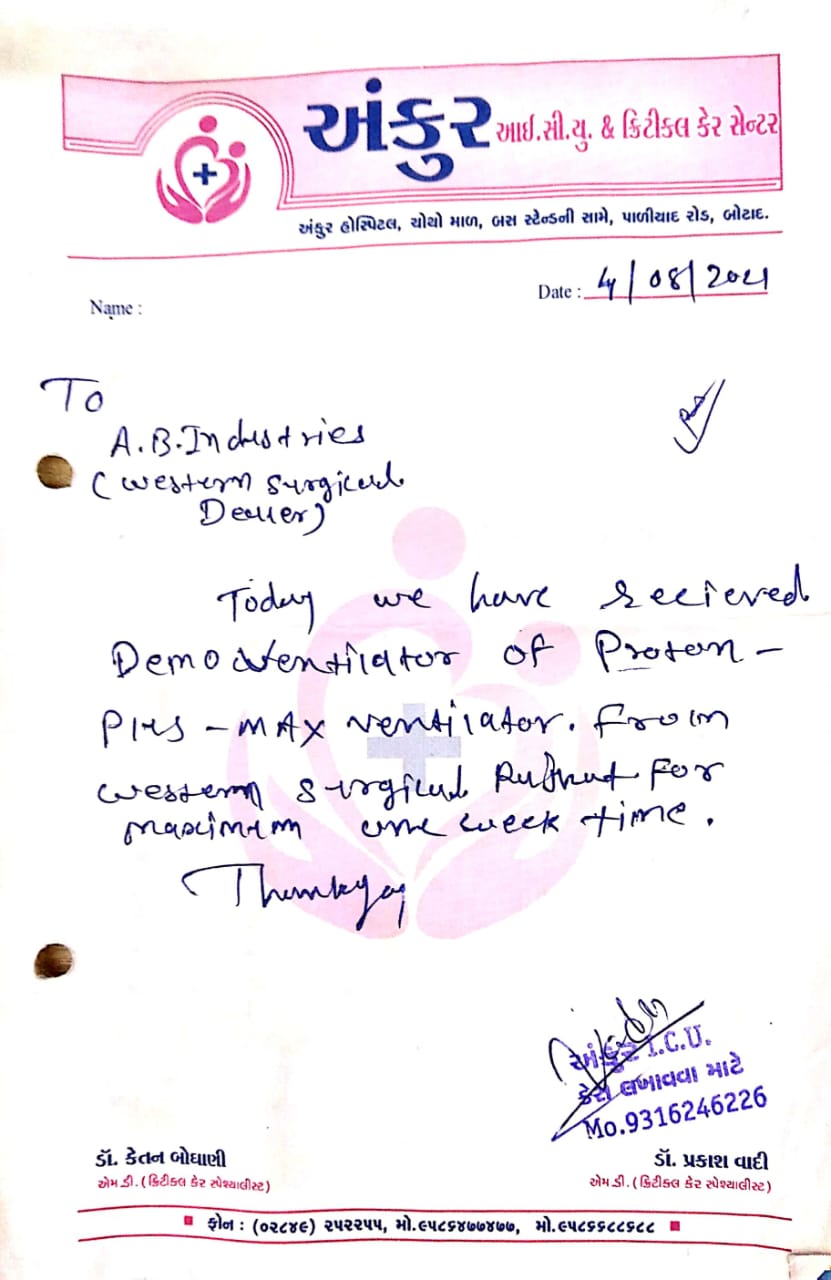 અંકુર આઈ.સી.યુ. & ક્રિટીકલ કેર સેન્ટર
અંકુર હોસ્પિટલ, ચોથો માળ, બસ સ્ટેન્ડની સામે, પાળીયાદ રોડ, બોટાદ.
Date : 4/08/2021
Name :
To
A.B.Industries
(western surgical
Dealer)
Today we have recieved
Demo ventilator of Proton-
Plus - MAX ventilator. From
western surgical Rajkot For
maximum one week time.
Thankyou
અંકુર I.C.U.
કેસ લખાવવા માટે
Mo.9316246226
ડૉ. કેતન બોઘાણી
એમ.ડી.(ક્રિટીકલ કેર સ્પેશ્યાલીસ્ટ)
ડૉ. પ્રકાશ વાદી
એમ.ડી.(ક્રિટીકલ કેર સ્પેશ્યાલીસ્ટ)
ફોન : (૦૨૮૪૯) ૨૫૨૨૫૫, મો.૯૫૮૬૪૭૭૪૭૭, મો.૯૫૮૬૬૮૮૬૮૮